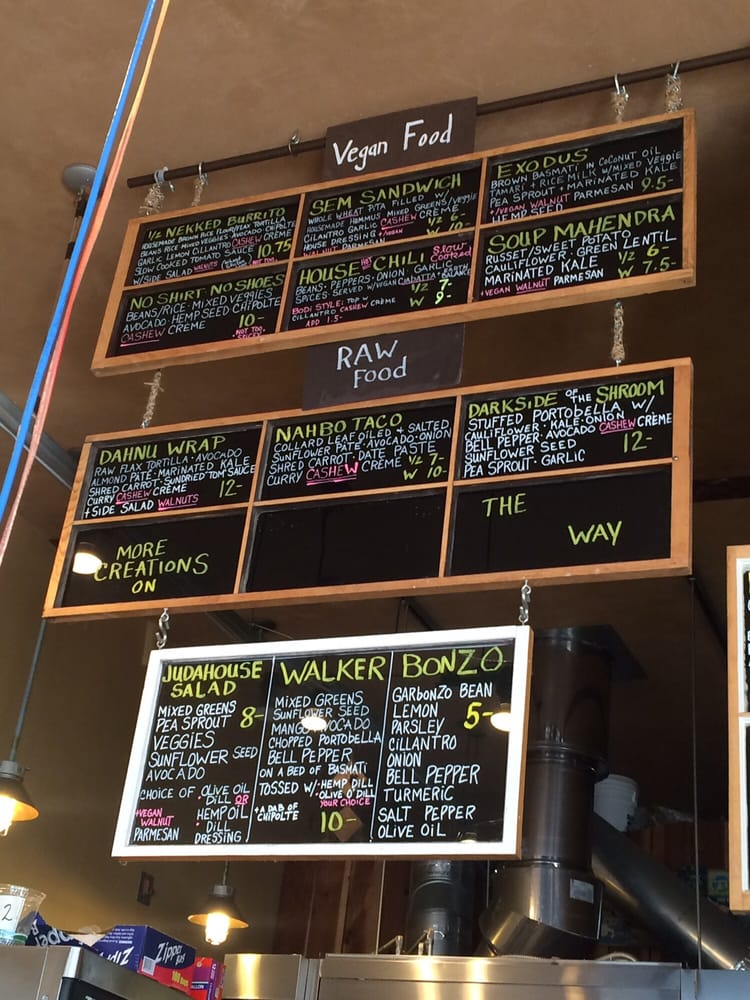 Vegan Food
1/2 NEKKED BURRITO
HOUSEMADE BROWN RICE FLOUR/FLAX TORTILLA
BEANS RICE MIXED VEGGIES AVOCADO CHIPOLTE
GARLIC LEMON CILLANTRO CASHEW CRÈME
SLOW COOKED TOMATO SAUCE 10.75
W/SIDE SALAD WALNUTS NOT TOO
SEM SANDWICH
WHOLE WHEAT PITA FILLED W/
HOUSEMADE HUMMUS MIXED GREENS/VEGGIE
CILANTRO GARLIC CASHEW CRÈME
HOUSE DRESSING +VEGAN 1/2 6-
WALNUT PARMESAN W 10-
EXODUS
BROWN BASMATI IN COCONUT OIL
TAMARI + RICE MILK W/MIXED VEGGIE
PEA SPROUT + MARINATED KALE
+VEGAN WALNUT PARMESAN 9.5-
HEMP SEED
NO SHIRT·NO SHOES
BEANS/RICE·MIXED VEGGIES
AVOCADO HEMP SEED CHIPOLTE
CASHEW CRÈME 10-
·NOT TOO
SPICEY
HOUSE CHILI Slow Cooked
BEANS·PEPPERS·ONION GARLIC
SPICES SERVED W/VEGAN CIABATTA
1/2 7-
W 9-
BODI STYLE: TOP W
CILLANTRO CASHEW CRÈME
ADD 1.5-
SOUP MAHENDRA
RUSSET/SWEET POTATO
CAULIFLOWER·GREEN LENTIL
MARINATED KALE 1/2 6-
+VEGAN WALNUT PARMESAN W 7.5-
RAW
Food
DAHNU WRAP
RAW FLAX TORTILLA·AVOCADO
ALMOND PATE·MARINATED KALE
SHRED CARROT·SUNDRIED TOM SAUCE
CURRY CASHEW CRÈME 12-
+SIDE SALAD WALNUTS
NAHBO TACO
COLLARD LEAF OILED + SALTED
SUNFLOWER PATE·AVOCADO·ONION
SHRED CARROT·DATE PASTE
CURRY CASHEW CRÈME 1/2 7-
W 10-
DARKSIDE OF THE SHROOM
STUFFED PORTOBELLA W/
CAULIFLOWER·KALE·ONION
BELL PEPPER·AVOCADO CASHEW CRÈME
SUNFLOWER SEED 12-
PEA SPROUT·GARLIC
MORE
CREATIONS
ON
THE
WAY
JUDAHOUSE
SALAD
MIXED GREENS
PEA SPROUT 8-
VEGGIES
SUNFLOWER SEED
AVOCADO
CHOICE OF ·OLIVE OIL
DILL OR
+VEGAN HEMP OIL
WALNUT ·DILL
PARMESAN DRESSING
WALKER
MIXED GREENS
SUNFLOWER SEED
MANGO AVOCADO
CHOPPED PORTOBELLA
BELL PEPPER
ON A BED OF BASMATI
TOSSED W/·HEMP DILL
·OLIVE O'DILL
+A DAB OF YOUR CHOICE
CHIPOLTE
10-
BONZO
GARBONZO BEAN
LEMON 5-
PARSLEY
CILLANTRO
ONION
BELL PEPPER
TURMERIC
SALT PEPPER
OLIVE OIL
2
Ziploc